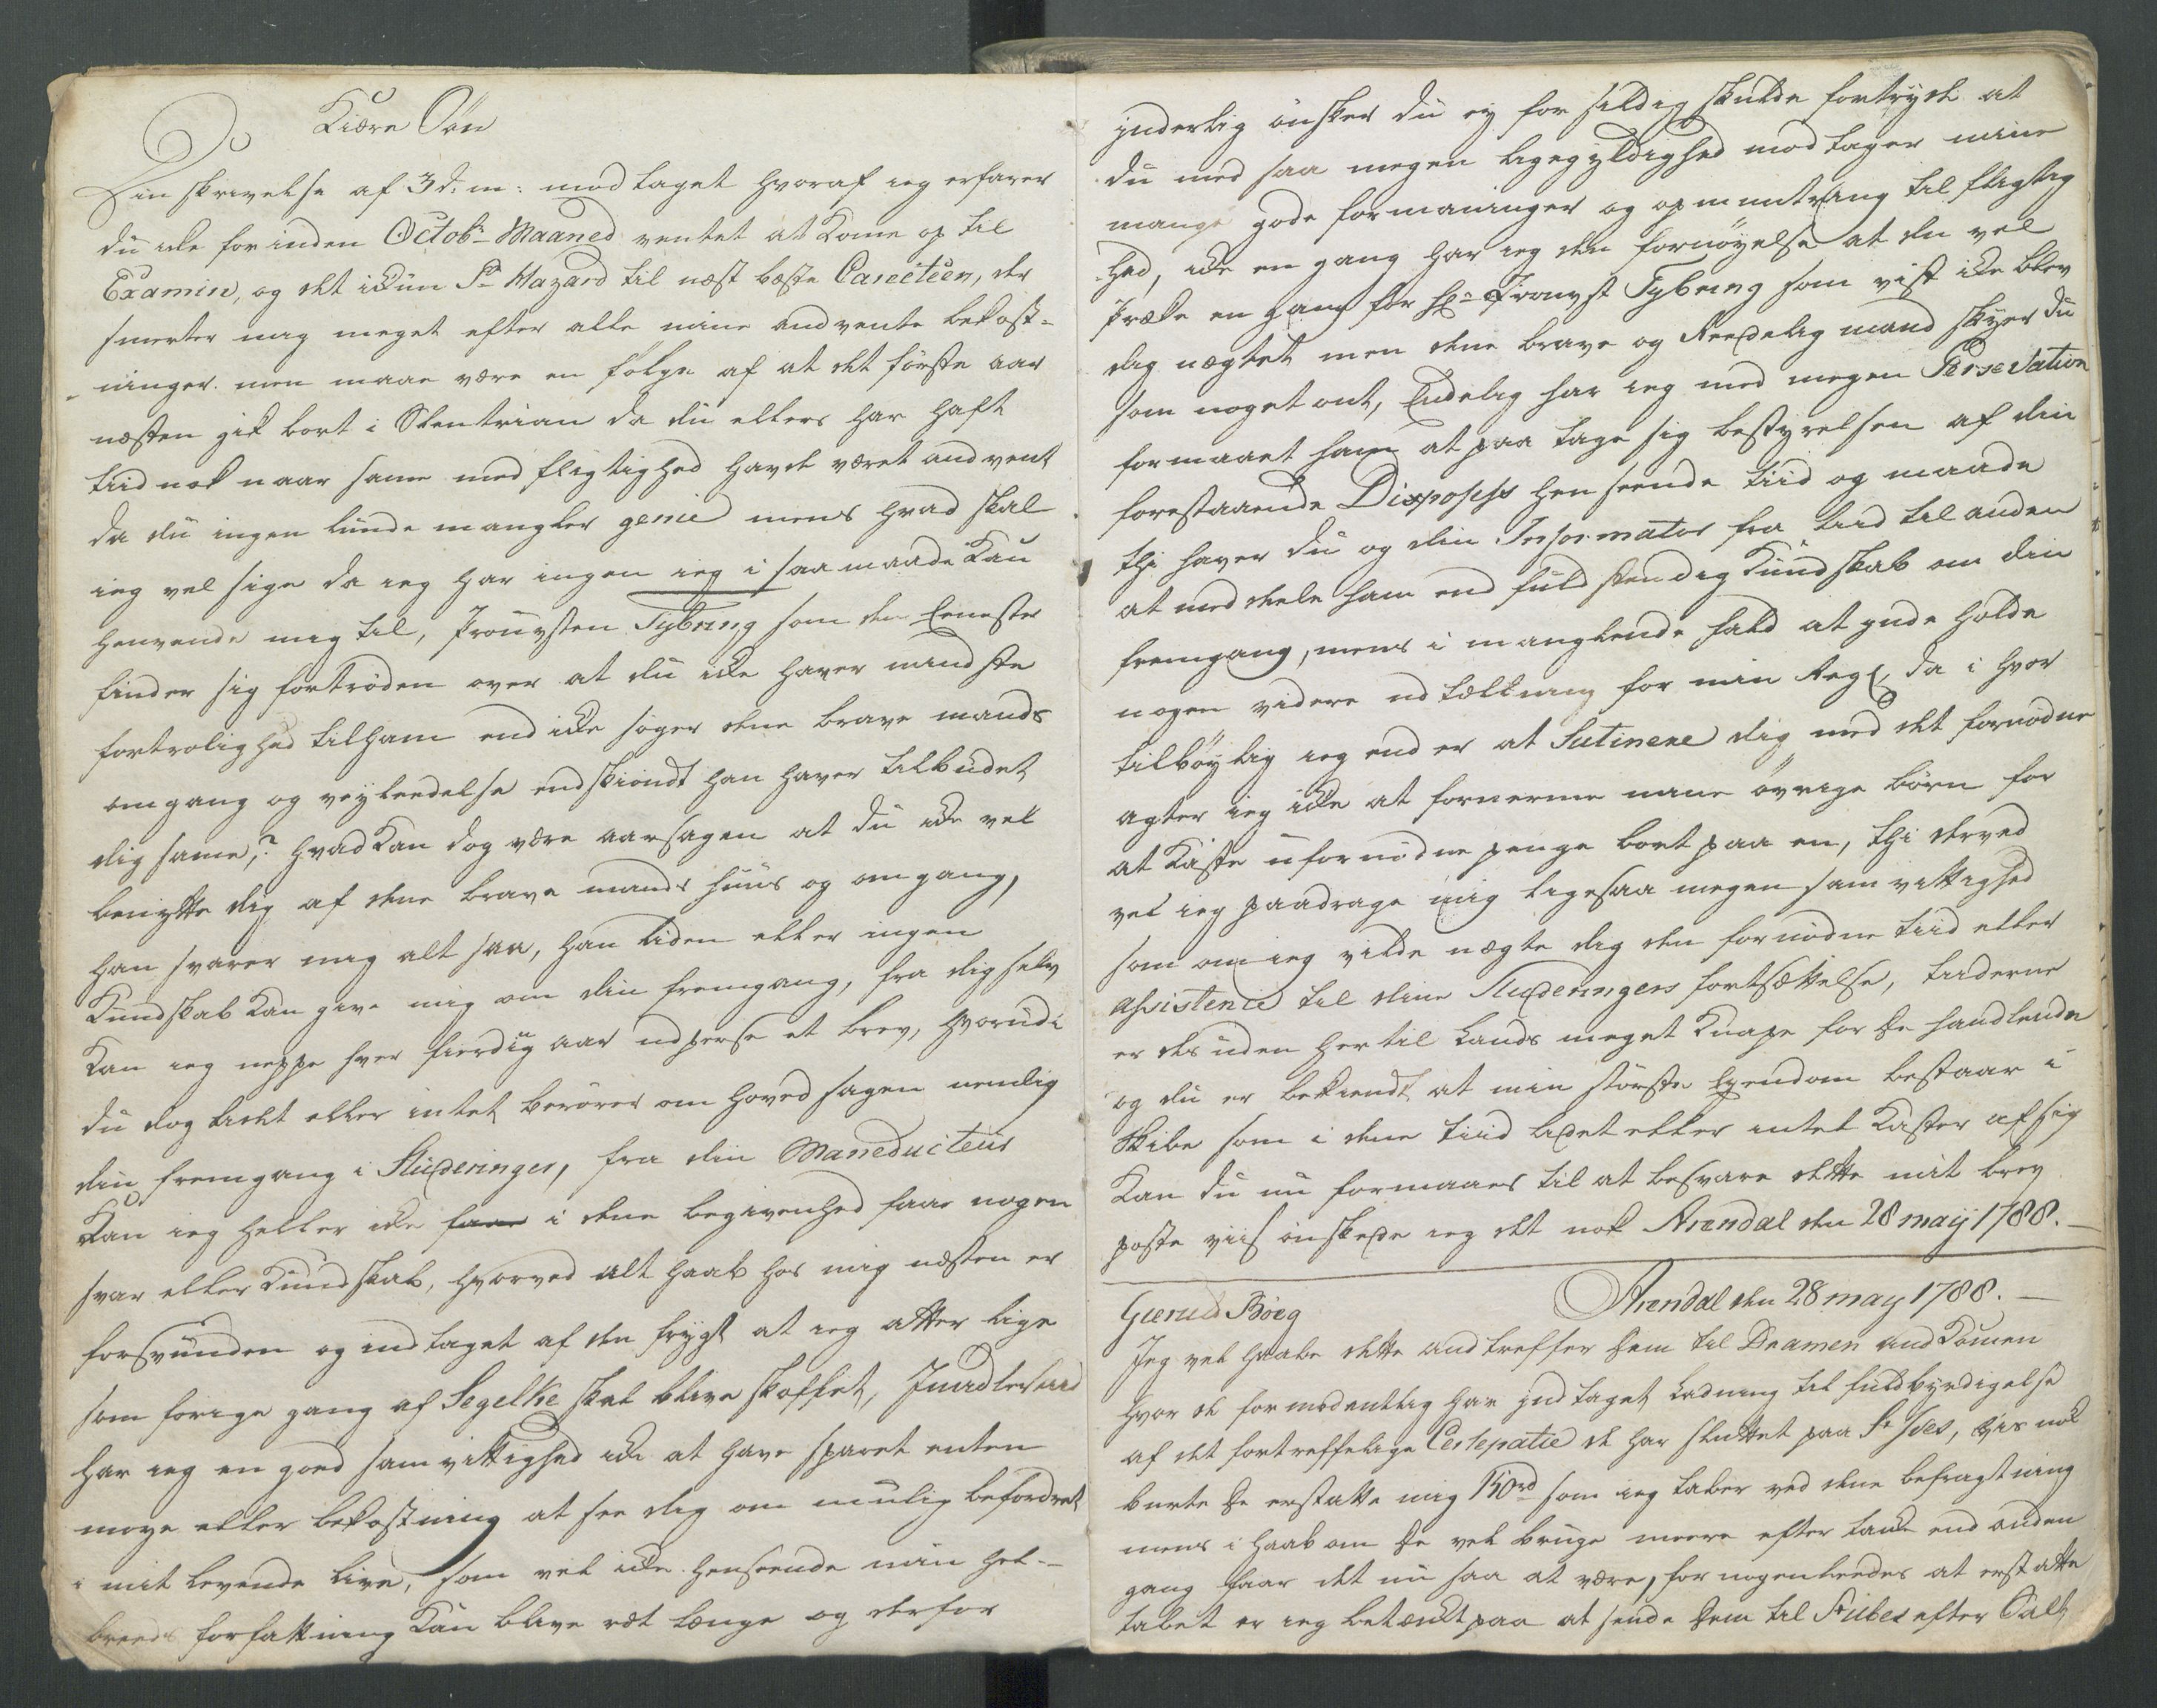 Kiære Søn
Din skrivelse af 3 d: m: modtaget hvoraf ieg erfarer
du icke forinden Octobr Maaned ventet at Kome op til
Examin, og det ickun Pr Hazard til næst bæste Carecteer, det
smerter mig meget efter alle mine anvente bekost-
ninger. men maae være en følge af at det første aar
næsten gik bort i Slentrian da du ellers har haft
tiid nok naar same med fligtighed havde været andvent
da du ingenlunde mangler genie mens hvad skal
ieg vel sige da ieg har ingen ieg i saa maade Kan
henvende mig til, Prousten Tybring som den Eeneste
finder sig fortrøden over at du icke haver mindste
fortrolighed til ham end icke søger dene brave mands
omgang og veyleedelse endskiøndt han haver tilbudet
dig same,? hvad Kan dog være aarsagen at du icke vel
benytte dig af dene brave mands huus og omgang,
han svarer mig alt saa, han liden eller ingen
Kundskab Kan give mig om din fremgang, fra dig selv
Kan ieg neppe hver fierdig aar udperse et brev, hvorudi
du dog lidet eller intet berører om hoved sagen nemlig
din fremgang i Studeringer, fra din Maneducteur
Kan ieg heller icke faae i dene begivenhed faae nogen
svar eller Kundskab, hvorved alt haab hos mig næsten er
forsvunden og indtaget af den frygt at ieg atter lige
som forige gang af Segelke skal blive skoffet, Imidlertiid
har ieg en goed samvittighed icke at have sparet enten
moye eller bekostning at see dig om mulig befordret
i mit levende live, som vel icke henseende min hel-
breeds forfattning Kan blive ret længe og derfor
ynderlig ønsker du ey for sildig skulde fortryde at
du med saa megen ligegyldighed modtager mine
mange gode formaninger og opmuntring til fligtig
hed, icke en gang har ieg den fornøyelse at du vel
Præke en gang for Hr Provst Tybring som vist icke blev
dig nægtet men dene brave og Reedelig mand skyer du
som noget ont, Endelig har ieg med megen Persevation
formaaet ham at paa tage sig bestyrelsen af din
forestaaende henseende tiid og maade
thi haver du og din Informator fra tiid til anden
at meddeele ham end fuldstendig Kundskab om din
fremgang, mens i manglende fald at ynde holde
nogen videre udtælling for min Regl, da i hvor
tilbøylig ieg end er at Sutinere dig med det fornødne
agter ieg icke at fornerme mine øvrige børn for
at Kaste ufornødne penge bort paa en, thi derved
vel ieg paadrage mig ligesaa megen samvittighed
som om ieg vilde nægte dig den fornødne tiid eller
assistence til dine Studeringers fortsættelse, tiiderne
er desuden her til Lands meget Knape for de handlende
og du er bekiendt at min største Eyendom bestaar i
Skibe som i dene tiid lidet eller intet Kaster af sig
Kan du nu formaaes til at besvare dette mit brev
poste viis ønskede ieg det nok Arendal den 28 maij 1788.
Arendal den 28 may 1788.
Gierud Børg
Jeg vel haabe dette andtreffer dem til Dramen andKomen
hvor de formodentlig har indtaget Ladning til fuldbyrdigelse
af det fortreffelige Certepatie de har sluttet paa St Ives, vis nok
burte de erstatte mig 150rd som ieg taber ved dene befragtning
mens i haab om de vel bruge meere efter tanke end anden
gang faar det nu saa at være, for nogenleedes at erstatte
tabet er ieg betænkt paa at sende dem til St Ubes efter Salt